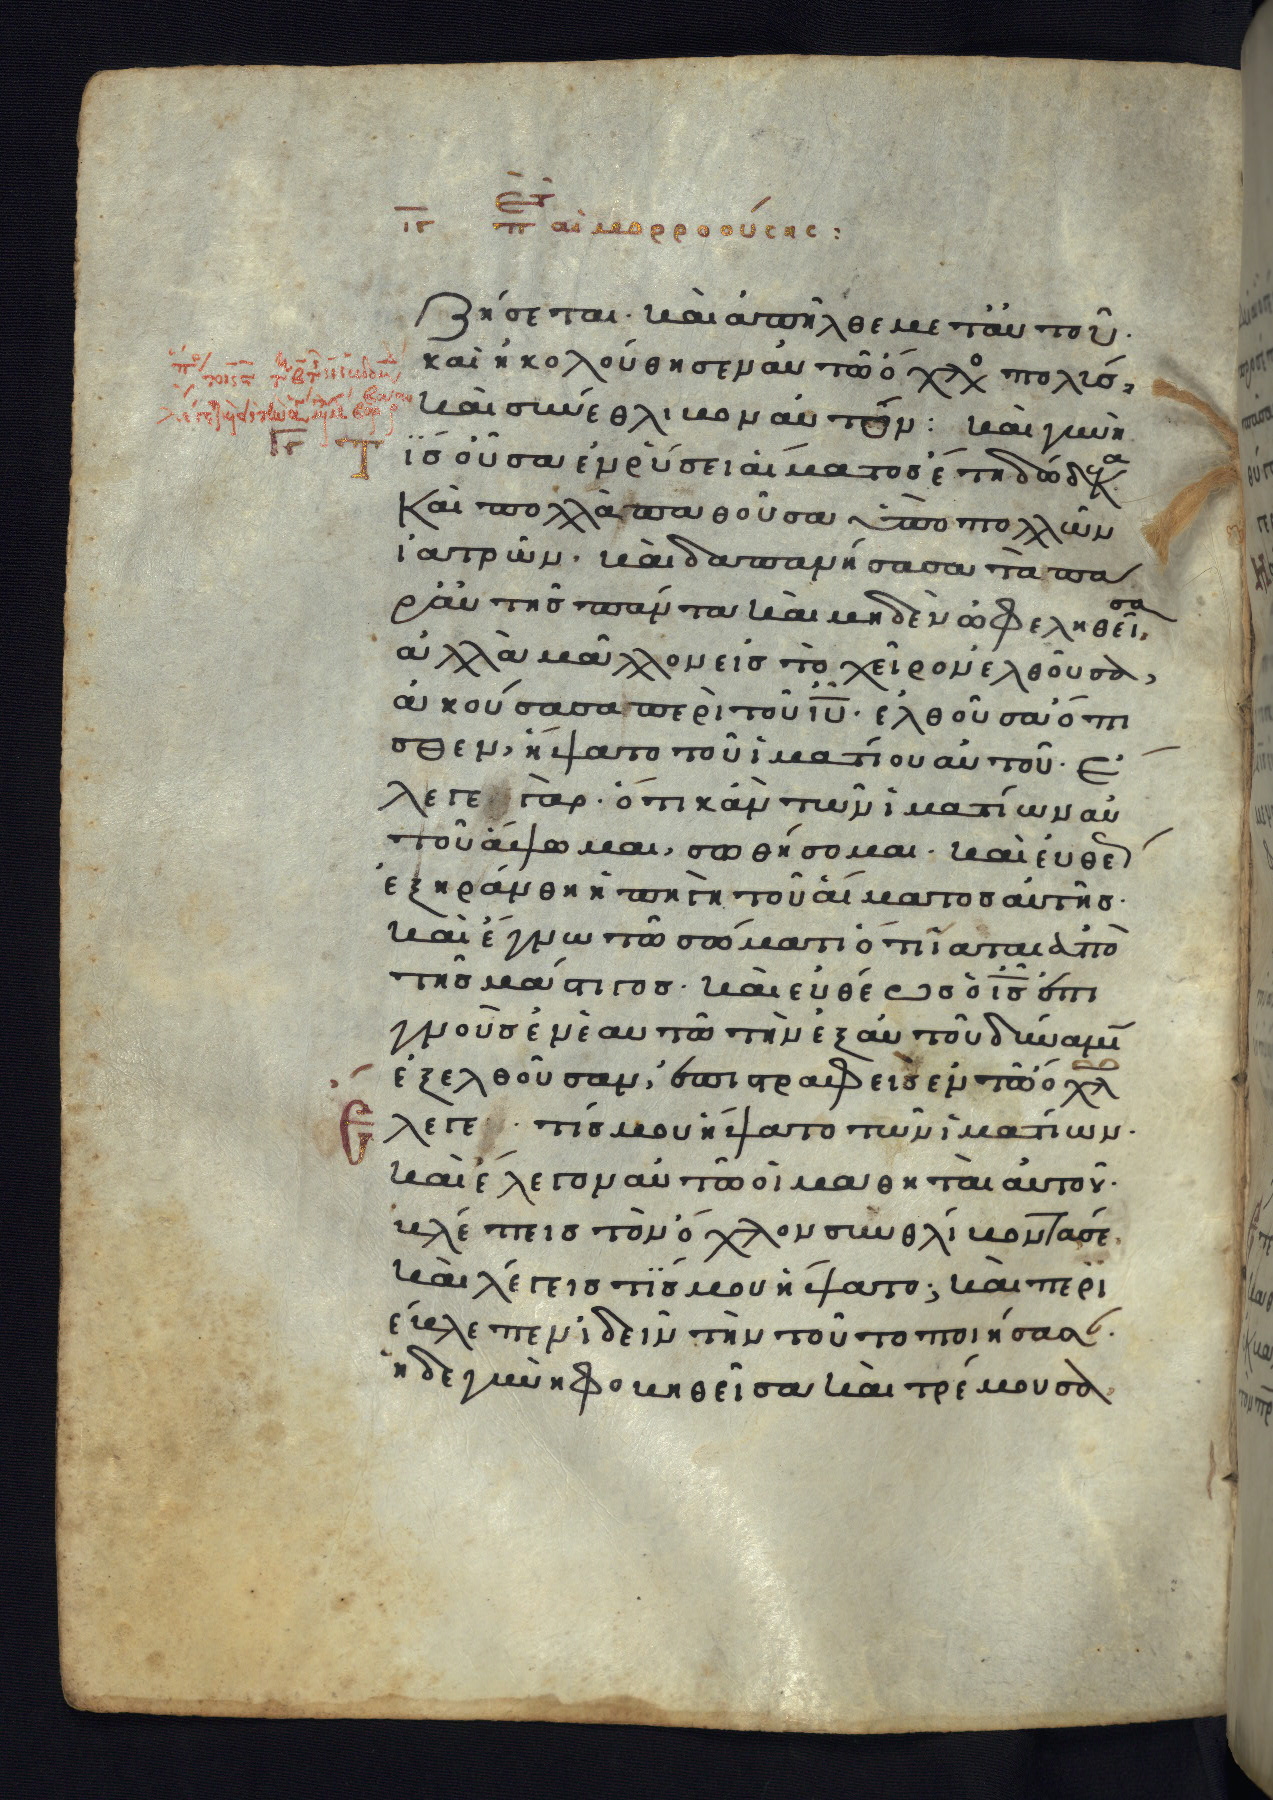 ιγ περὶ τῆς αἱμορροούσης:
ζήσεται· καὶ ἀπῆλθε μετ' αὐτοῦ·
καὶ ἠκολούθησεν αὐτῶ ὄχλος πολύς,
καὶ συνέθλιβον αὐτόν: καὶ γυνή
τὶς οὖσα ἐν ῥύσει αἵματος ἔτη δώδεκα
καὶ πολλὰ παθοῦσα ὑπὸ πολλῶν
ἰατρῶν· καὶ δαπανήσασα τὰ πα
ρ' αὐτῆς πάντα καὶ μηδὲν ὠφεληθεῖσα,
ἀλλὰ μᾶλλον εἰς τὸ χεῖρον ἐλθοῦσα,
ἀκούσασα περὶ τοῦ ιῦ· ἐλθοῦσα ὄπι
σθεν, ἥψατο τοῦ ἱματίου αὐτοῦ· ἔ
λεγε γάρ· ὅτι κἂν τῶν ἱματίων αὐ
τοῦ ἅψωμαι, σωθήσομαι· καὶ εὐθέως
ἐξηράνθη ἡ πηγὴ τοῦ αἵματος αὐτῆς·
καὶ ἔγνω τῶ σώματι ὅτι ἴαται ἀπὸ
τῆς μάστιγος· καὶ εὐθέως ὁ ις ἐπι
γνοὺς ἐν ἑαυτῶ τὴν ἐξ αὐτοῦ δύναμιν
ἐξελθοῦσαν, ἐπιστραφεὶς ἐν τῶ ὄχλω
ἔλεγε· τίς μου ἥψατο τῶν ἱματίων·
καὶ ἔλεγον αὐτῶ οἱ μαθηταὶ αὐτοῦ·
βλέπεις τὸν ὄχλον συνθλίβοντα σέ,
καὶ λέγεις τίς μου ἥψατο; καὶ περι
έβλεπεν ἰδεῖν τὴν τοῦτο ποιήσασαν·
ἡ δὲ γυνὴ φοβηθεῖσα καὶ τρέμουσα,